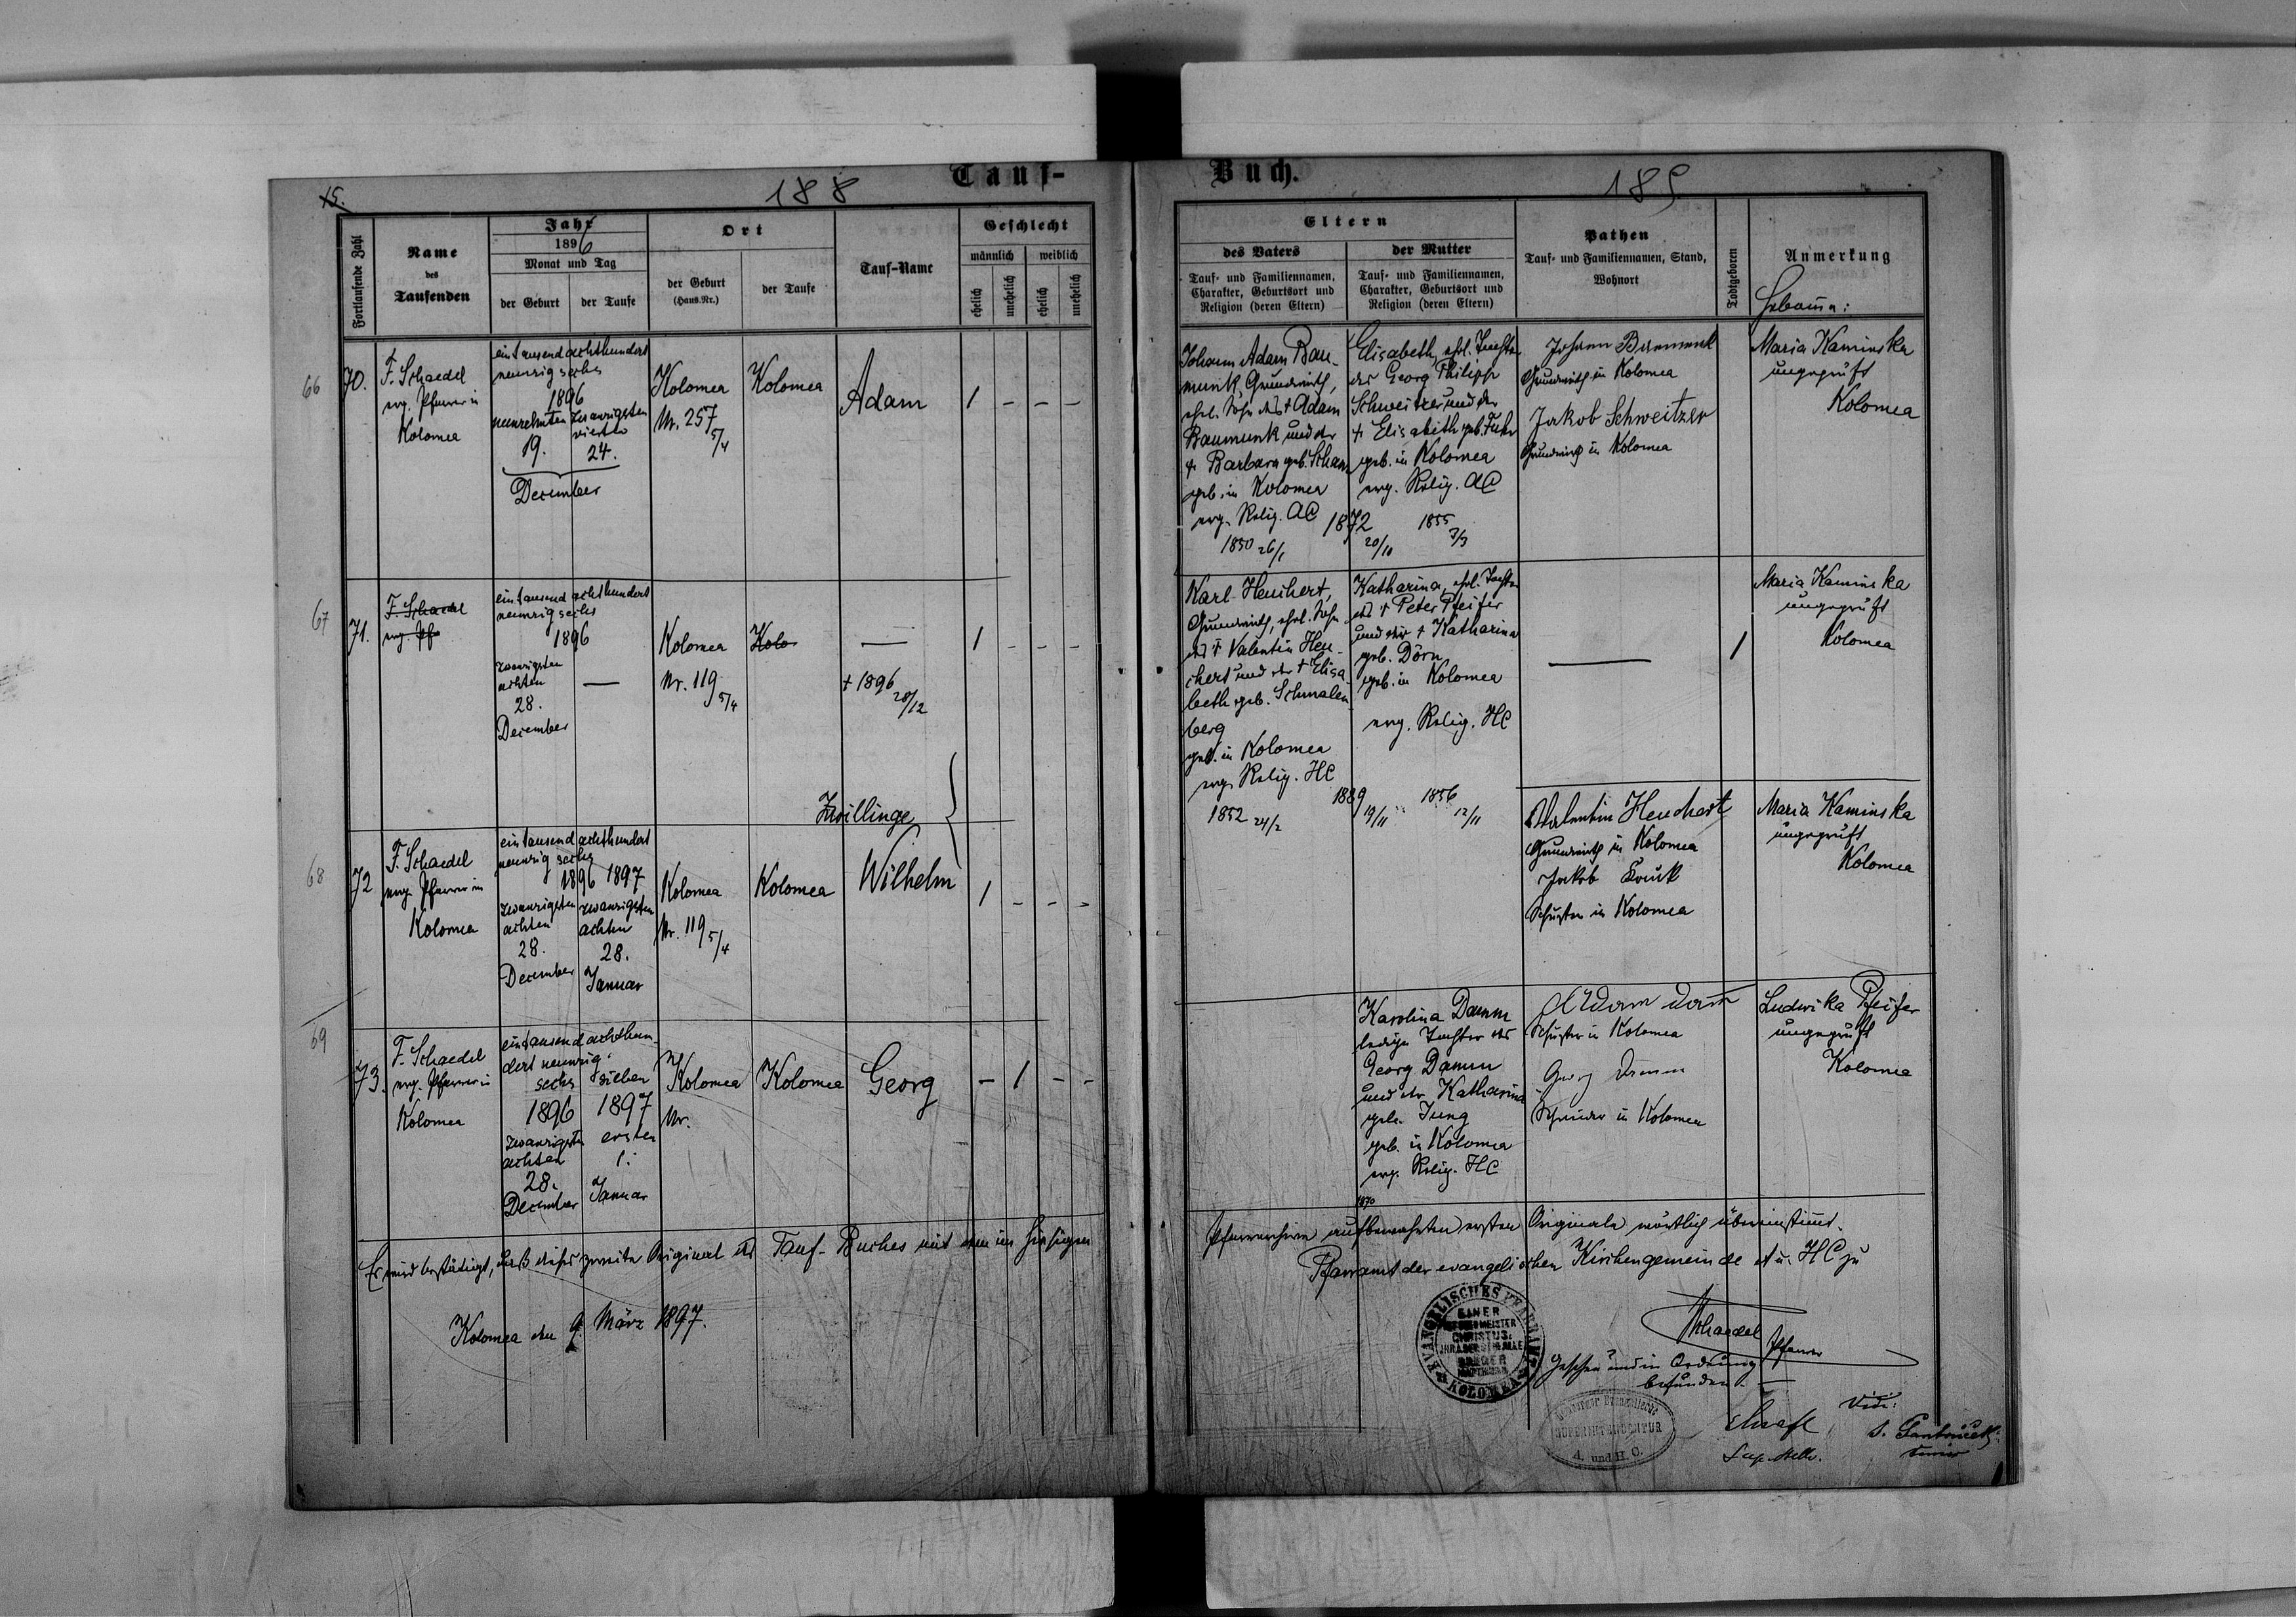 Tauf-
Buch.
15.
188
189
Fortlaufende Zahl
Name
des
Taufenden
Jahr
1896
Monat und Tag
der Geburt
der Taufe
Ort
der Geburt
(Haus-Nr.)
der Taufe
Tauf-Name
Geschlecht
männlich
weiblich
ehelich
unehelich
ehelich
unehelich
Eltern
des Vaters
Tauf- und Familiennamen,
Charakter, Geburtsort und
Religion (deren Eltern)
der Mutter
Tauf- und Familiennamen,
Charakter, Geburtsort und
Religion (deren Eltern)
Pathen
Tauf- und Familiennamen, Stand,
Wohnort
Todtgeboren
Anmerkung
Hebamme:
66
70.
F. Schaedel
evg. Pfarrer in
Kolomea
eintausend achthundert
neunzig sechs
1896
neunzehnten
19.
zwanzigsten
vierten
24.
December
Kolomea
Nr. 257
5/4
Kolomea
Adam
1 - - -
Johann Adam Bau-
munk Grundwirth,
ehel. Sohn des † Adam
Baumunk und der
† Barbara geb. Scham
geb. in Kolomea
evg. Relig. AC
1850 26/1
1872
20/10
Elisabeth, ehel. Tochter
des Georg Philipp
Schweitzer und der
† Elisabeth geb. Fuhr
geb. in Kolomea
evg. Relig. AC
1855
7/3
Johann Baumunk
Grundwirth in Kolomea
Jakob Schweitzer
Grundwirth in Kolomea
Maria Kaminska
ungeprüft
Kolomea
67
71.
F. Schaedel
evg. Pf
eintausend achthundert
neunzig sechs
1896
zwanzigsten
achten
28.
December
—
Kolomea
Nr. 119
5/4
Kolo
—
† 1896
28/12
1 - - -
Karl Heuchert,
Grundwirth, ehel. Sohn
des † Valentin Heu-
chert und der † Elisa-
beth geb. Schmalen
berg
geb. in Kolomea
evg. Relig. HC
1852 24/2
1889
19/11
Katharina, ehel. Tochter
des † Peter Pfeifer
und der † Katharina
geb. Dörn
geb. in Kolomea
evg. Relig. HC
1856
12/11
—
1
Maria Kaminska
ungeprüft
Kolomea
Zwillinge
68
72
F. Schaedel
evg. Pfarrer in
Kolomea
eintausend achthundert
neunzig sechs
1896 1897
zwanzigsten
achten
28.
December
zwanzigsten
achten
28.
Januar
Kolomea
Nr. 119
5/4
Kolomea
Wilhelm
1 - - -
Valentin Heuchert
Grundwirth in Kolomea
Jakob
Schuster in Kolomea
Maria Kaminska
ungeprüft
Kolomea
69
73.
F. Schaedel
evg. Pfarrer in
Kolomea
eintausend achthun-
dert neunzig
sechs sieben
1896 1897
zwanzigsten
achten
28.
December
ersten
1.
Januar
Kolomea
Nr.
Kolomea
Georg
- 1 - -
Karolina Damm
ledige Tochter des
Georg Damm
und der Katharina
geb. Jung
geb. in Kolomea
evg. Relig. HC
1870
Adam Dam
Schuster in Kolomea
Georg Damm
Schneider in Kolomea
Ludwika Pfeifer
ungeprüft
Kolomea
Es wird bestätigt, daß dieses zweite Original des Tauf-Buches mit dem im hiesigen
Pfarrarchive aufbewahrten ersten Originale wörtlich übereinstimmt.
Pfarramt der evangelischen Kirchengemeinde A u. HC zu
Kolomea den 9. März 1897.
EVANGELISCHES PFARRAMT
KOLOMEA
EINER
CHRISTUS
Schaedel
Pfarrer
Gesehen und in Ordnung
befunden. —
SUPERINTENDENTUR
A. und H. C.
Vidi: